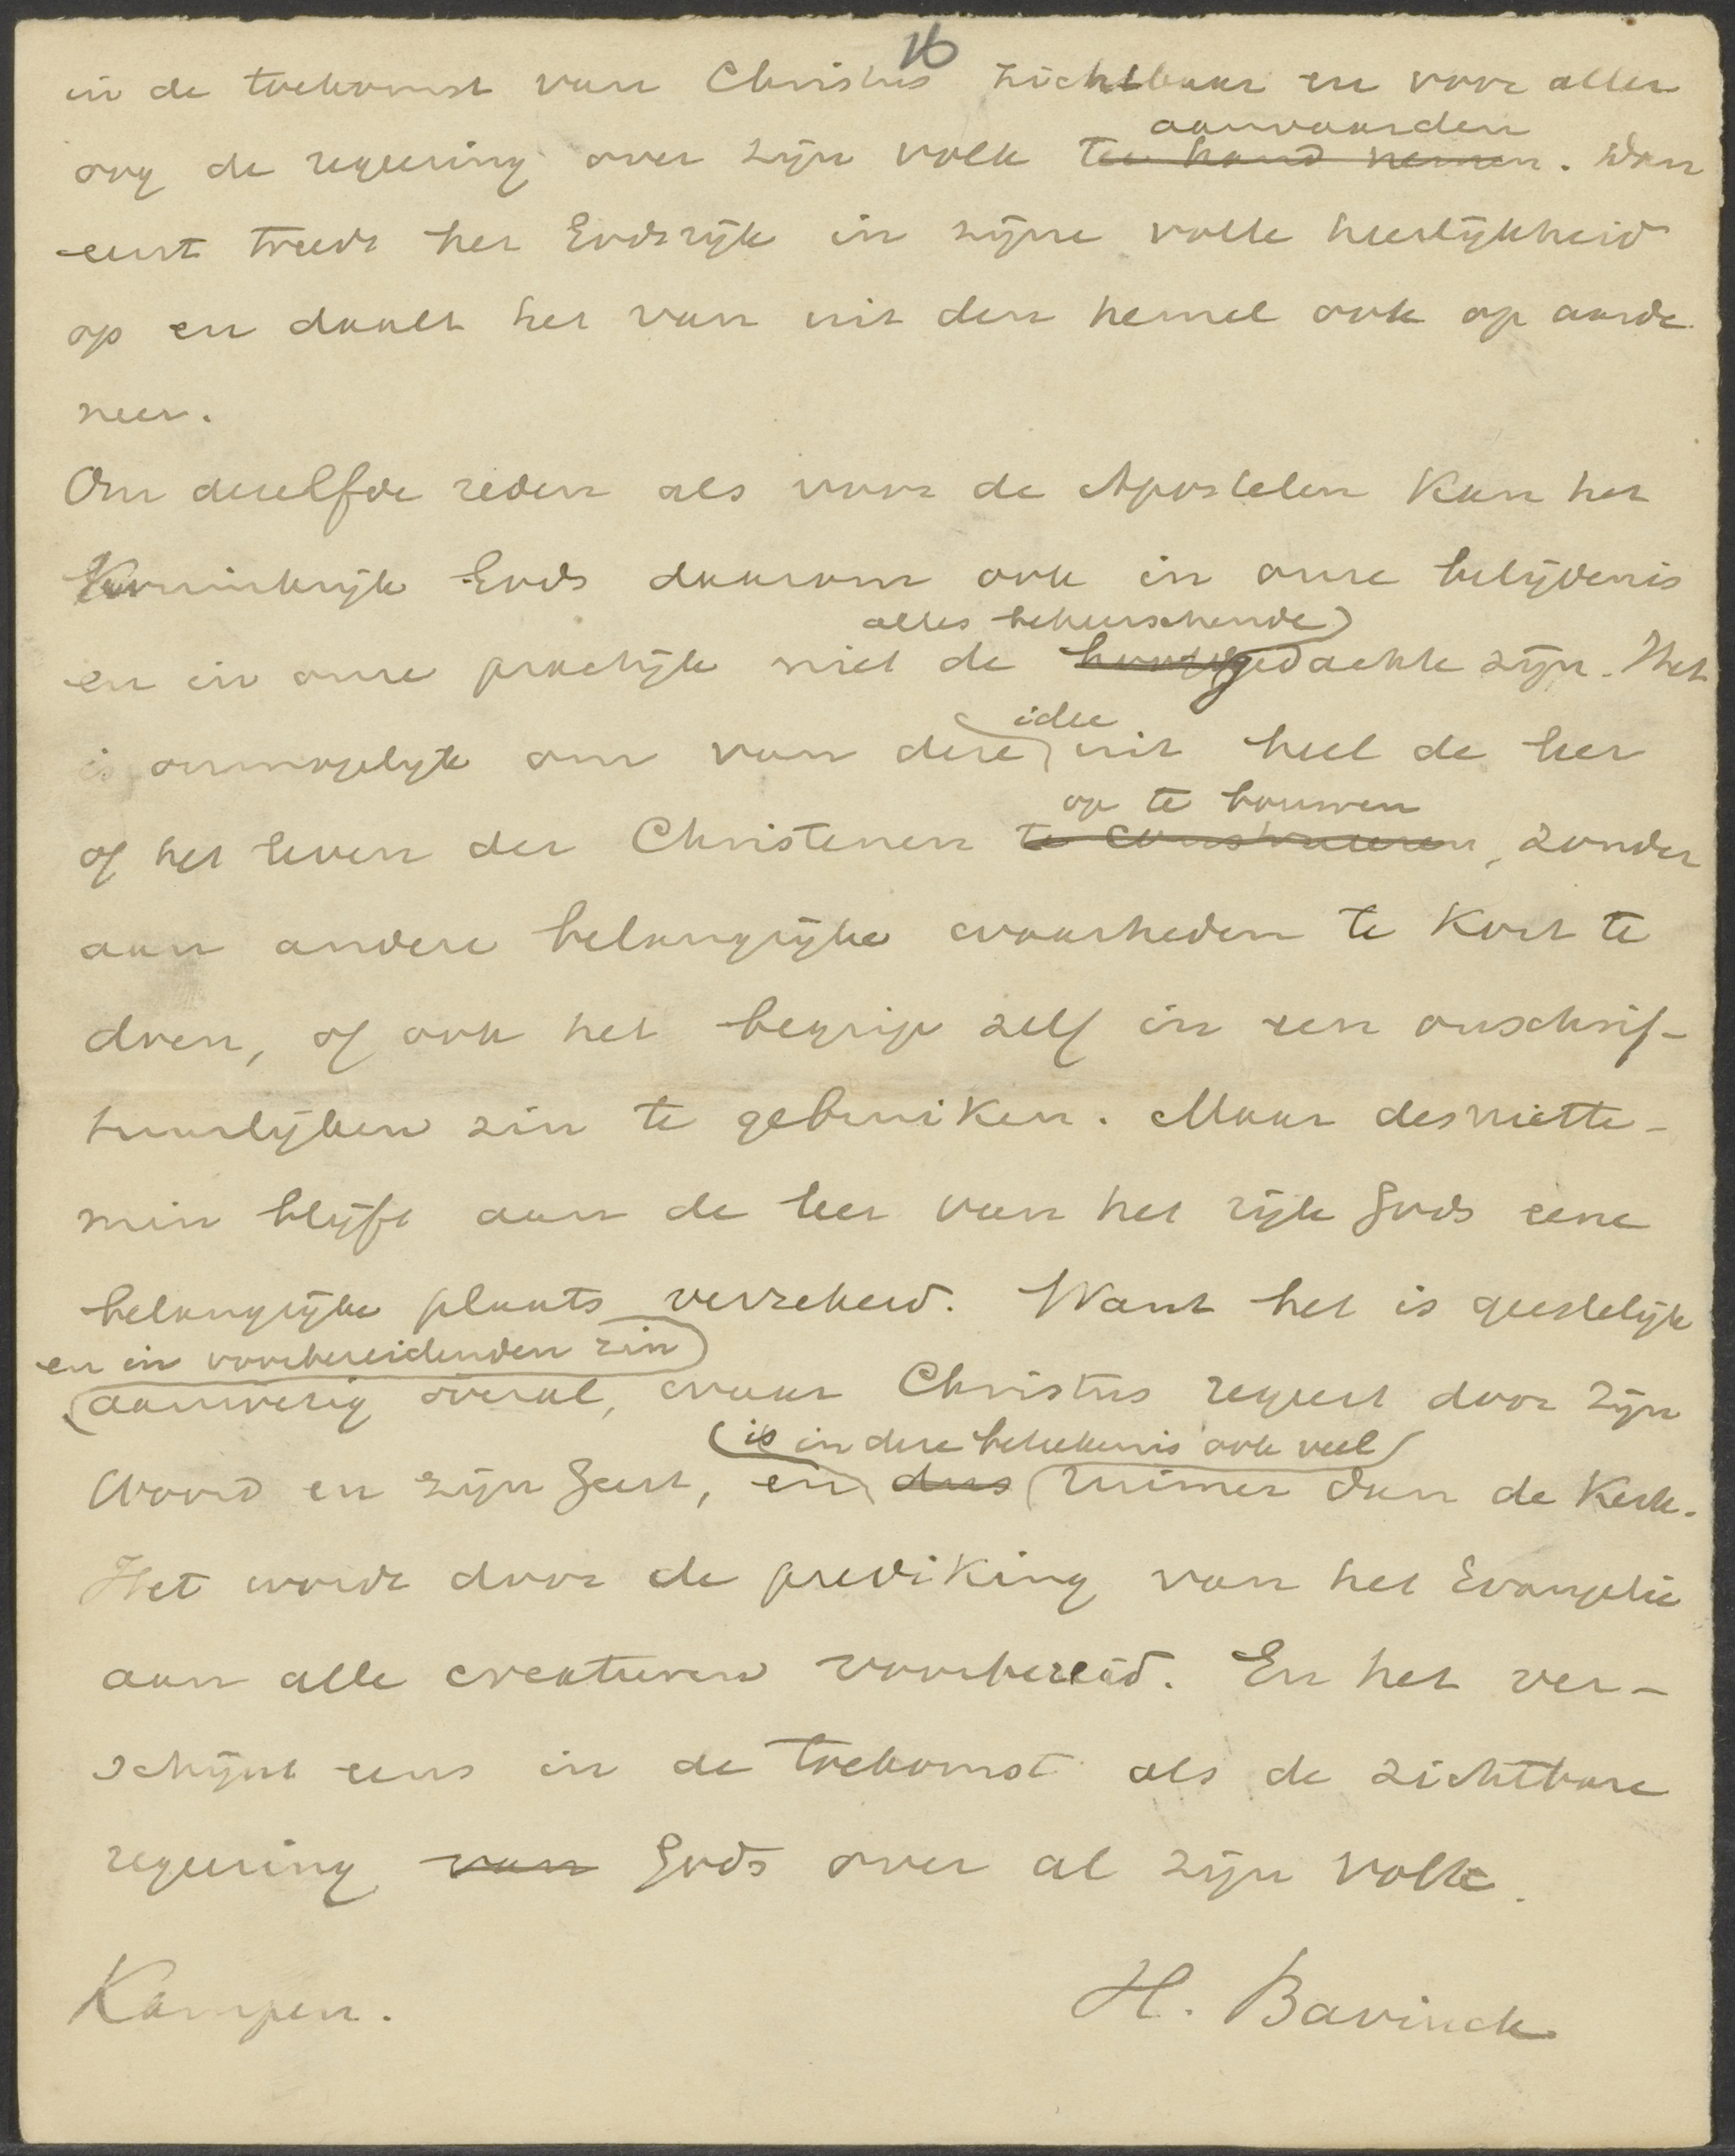 16
in de toekomst van Christus zichtbaar en voor aller
aanvaarden
oog de regeering over zijn volk ter hand nemen. Dan
eerst treedt het Godsrijk in zijne volle heerlijkheid
op en daalt het van uit den hemel ook op aarde
neer.
Om dezelfde reden als voor de Apostelen kan het
Koninkrijk Gods daarom ook in onze belijdenis
alles beheerschende
en in onze praktijk niet de hoofdgedachte zijn. Het
idee
is onmogelijk om van deze uit heel de leer
op te bouwen
of het leven der Christenen te construeeren, zonder
aan andere belangrijke waarheden te kort te
doen, of ook het begrip zelf in een onschrif-
tuurlijken zin te gebruiken. Maar desniette-
min blijft aan de leer van het rijk Gods eene
belangrijke plaats verzekerd. Want het is geestelijk
en in voorbereidenden zin
aanwezig overal, waar Christus regeert door zijn
is in deze beteekenis ook veel
Woord en zijn Geest, en dus ruimer dan de Kerk.
Het wordt door de prediking van het Evangelie
aan alle creaturen voorbereid. En het ver-
schijnt eens in de toekomst als de zichtbare
regeering van Gods over al zijn volk.
Kampen.
H. Bavinck